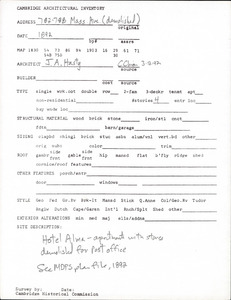 CAMBRIDGE ARCHITECTURAL INVENTORY
ADDRESS 782-798 Mass Ave (demolished)
original
DATE 1892
use
MAP 1830 54 73 86 94 1903 16 30 61 71
ARCHITECT J.A. Hasty 3-12-92
source
BUILDER
cost source
TYPE single wrk.cot double row 2-fam 3-deckr tenmt apt
non-residential #stories 4 entr inc
bay wndo loc
STRUCTURAL MATERIAL wood brick stone iron/stl conct
fdtn barn/garage
SIDING clapbd shingl brick stuc asbs alum/vol vert.bd other
orig subs color trim
ROOF gamb side side hip mansd flat d'fly ridge shed
front front
cornice/roof features
OTHER FEATURES porch/entr
door windows
STYLE Gen Fed Gr.Rv Brk-It Mansd Stick Q.Anne Col/Geo.Rv Tudor
Bngiw Dutch Cape/Garrs Int'l Rnch/Splt Shed other
EXTERIOR ALTERATIONS min med maj sills/addns
SITE DESCRIPTION:
Hotel Alma - apartments with stores
demolished for post office
See MDPS plan file, 1892
Survey by: Date:
Cambridge Historical Commission